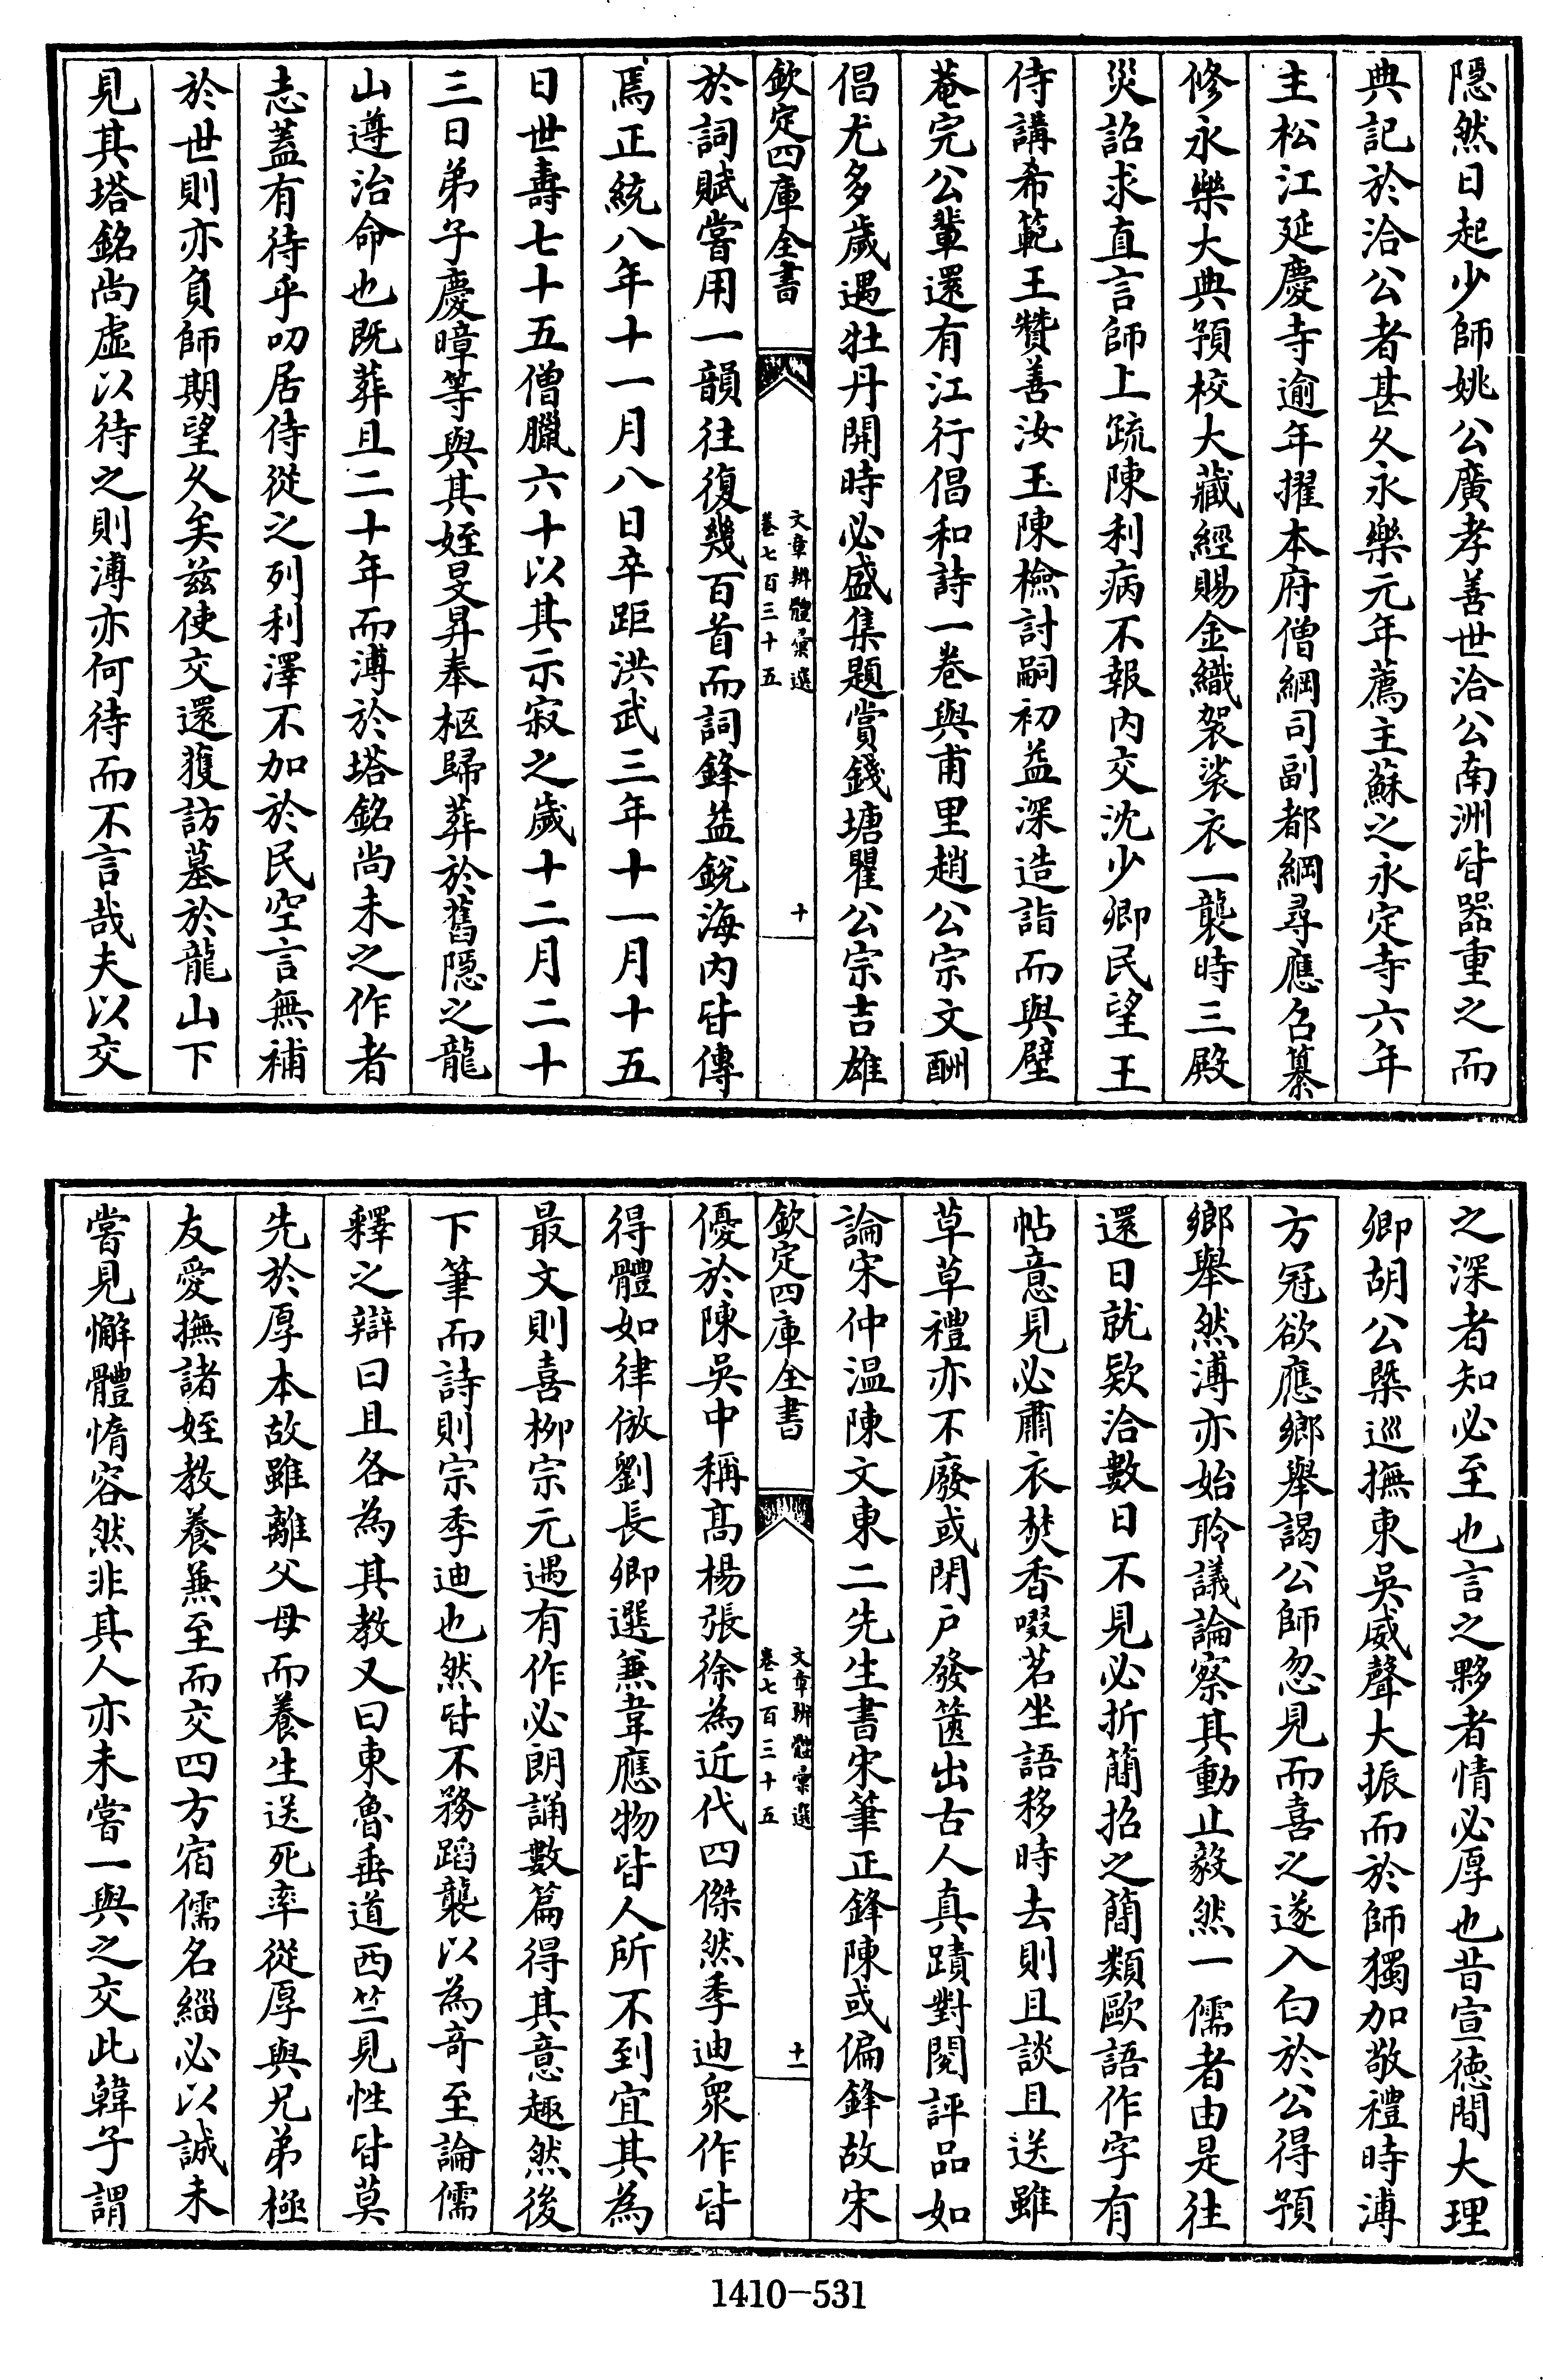 隱然日起少師姚公廣孝善世洽公南洲皆器重之而
典記於洽公者甚久永樂元年薦主蘇之永定寺六年
主松江延慶寺逾年擢本府僧綱司副都綱尋應召纂
修永樂大典預校大藏經賜金織袈裟衣一襲時三殿
災詔求直言師上疏陳利病不報内交沈少卿民望王
侍講希範王贊善汝玉陳檢討嗣初益深造詣而與壁
菴完公輩還有江行倡和詩一卷與甫里趙公宗文酬
倡尤多歲遇牡丹開時必盛集題賞錢塘瞿公宗吉雄
欽定四庫全書
文章辨體彙選
卷七百三十五
十
於詞賦嘗用一韻往復幾百首而詞鋒益銳海内皆傳
焉正統八年十一月八日卒距洪武三年十一月十五
日世壽七十五僧臘六十以其示寂之歲十二月二十
三日弟子慶暲等與其姪旻昇奉柩歸葬於舊隱之龍
山遵治命也既葬且二十年而溥於塔銘尚未之作者
志蓋有待乎叨居侍從之列利澤不加於民空言無補
於世則亦負師期望久矣兹使交還獲訪墓於龍山下
見其塔銘尚虛以待之則溥亦何待而不言哉夫以交
之深者知必至也言之夥者情必厚也昔宣德間大理
卿胡公槩巡撫東吳威聲大振而於師獨加敬禮時溥
方冠欲應鄉舉謁公師忽見而喜之遂入白於公得預
鄉舉然溥亦始聆議論察其動止毅然一儒者由是往
還日就欵洽數日不見必折簡招之簡類歐語作字有
帖意見必肅衣焚香啜茗坐語移時去則且談且送雖
草草禮亦不廢或閉戸發篋出古人真蹟對閱評品如
論宋仲温陳文東二先生書宋筆正鋒陳或偏鋒故宋
欽定四庫全書
文章辨體彙選
卷七百三十五
十一
優於陳吳中稱髙楊張徐為近代四傑然季迪衆作皆
得體如律倣劉長卿選兼韋應物皆人所不到宜其為
最文則喜柳宗元遇有作必朗誦數篇得其意趣然後
下筆而詩則宗季迪也然皆不務蹈襲以為竒至論儒
釋之辯曰且各為其教又曰東魯垂道西竺見性皆莫
先於厚本故雖離父母而養生送死率從厚與兄弟極
友愛撫諸姪教養兼至而交四方宿儒名緇必以誠未
嘗見懈體惰容然非其人亦未嘗一與之交此韓子謂
1410-531